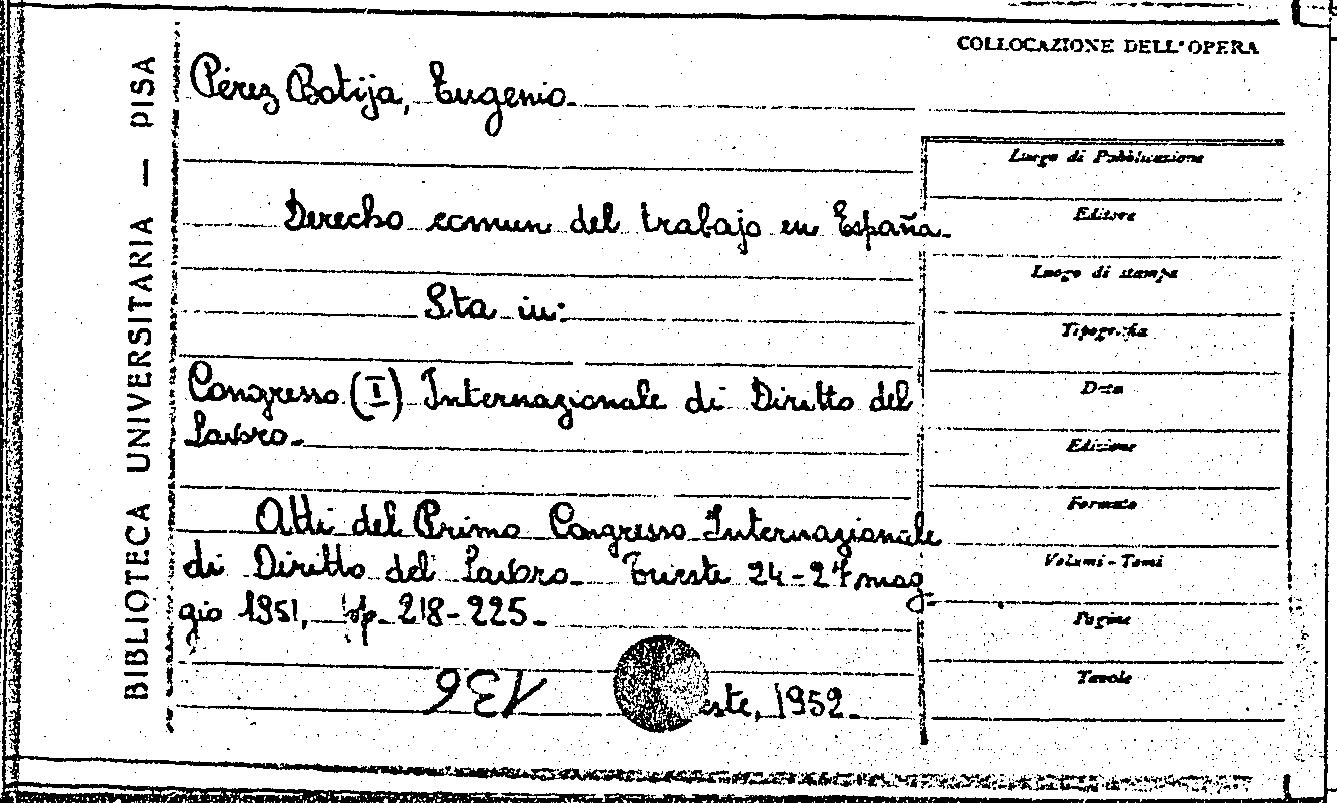 COLLOCAZIONE DELL'OPERA
BIBLIOTECA UNIVERSITARIA — PISA
Pérez Botija, Eugenio.
Derecho comun del trabajo en España.
Sta in:
Congresso (I) Internazionale di Diritto del
Lavoro.
Atti del Primo Congresso Internazionale
di Diritto del Lavoro. Trieste 24-27 mag
gio 1951, pp. 218-225.
este, 1952.
Luogo di Pubblicazione
Editore
Luogo di stampa
Tipografia
Data
Edizione
Formato
Volumi - Tomi
Pagine
Tavole